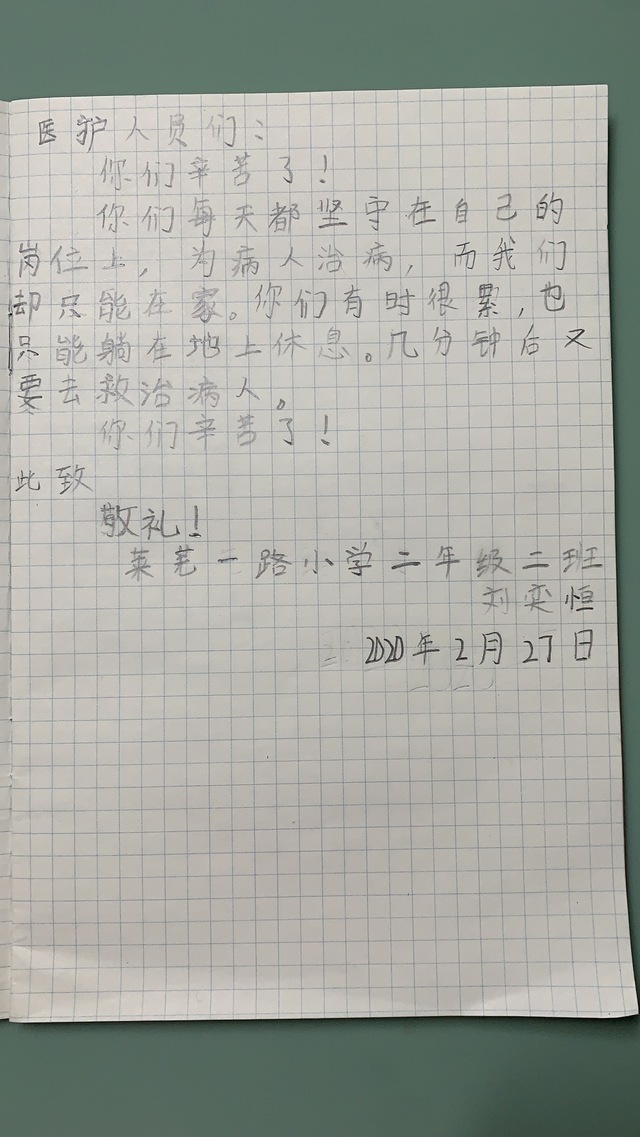 医护人员们：
你们辛苦了！
你们每天都坚守在自己的
岗位上，为病人治病，而我们
却只能在家。你们有时很累，也
只能躺在地上休息。几分钟后又
要去救治病人。
你们辛苦了！
此致
敬礼！
莱芜一路小学二年级二班
刘奕恒
2020年2月27日